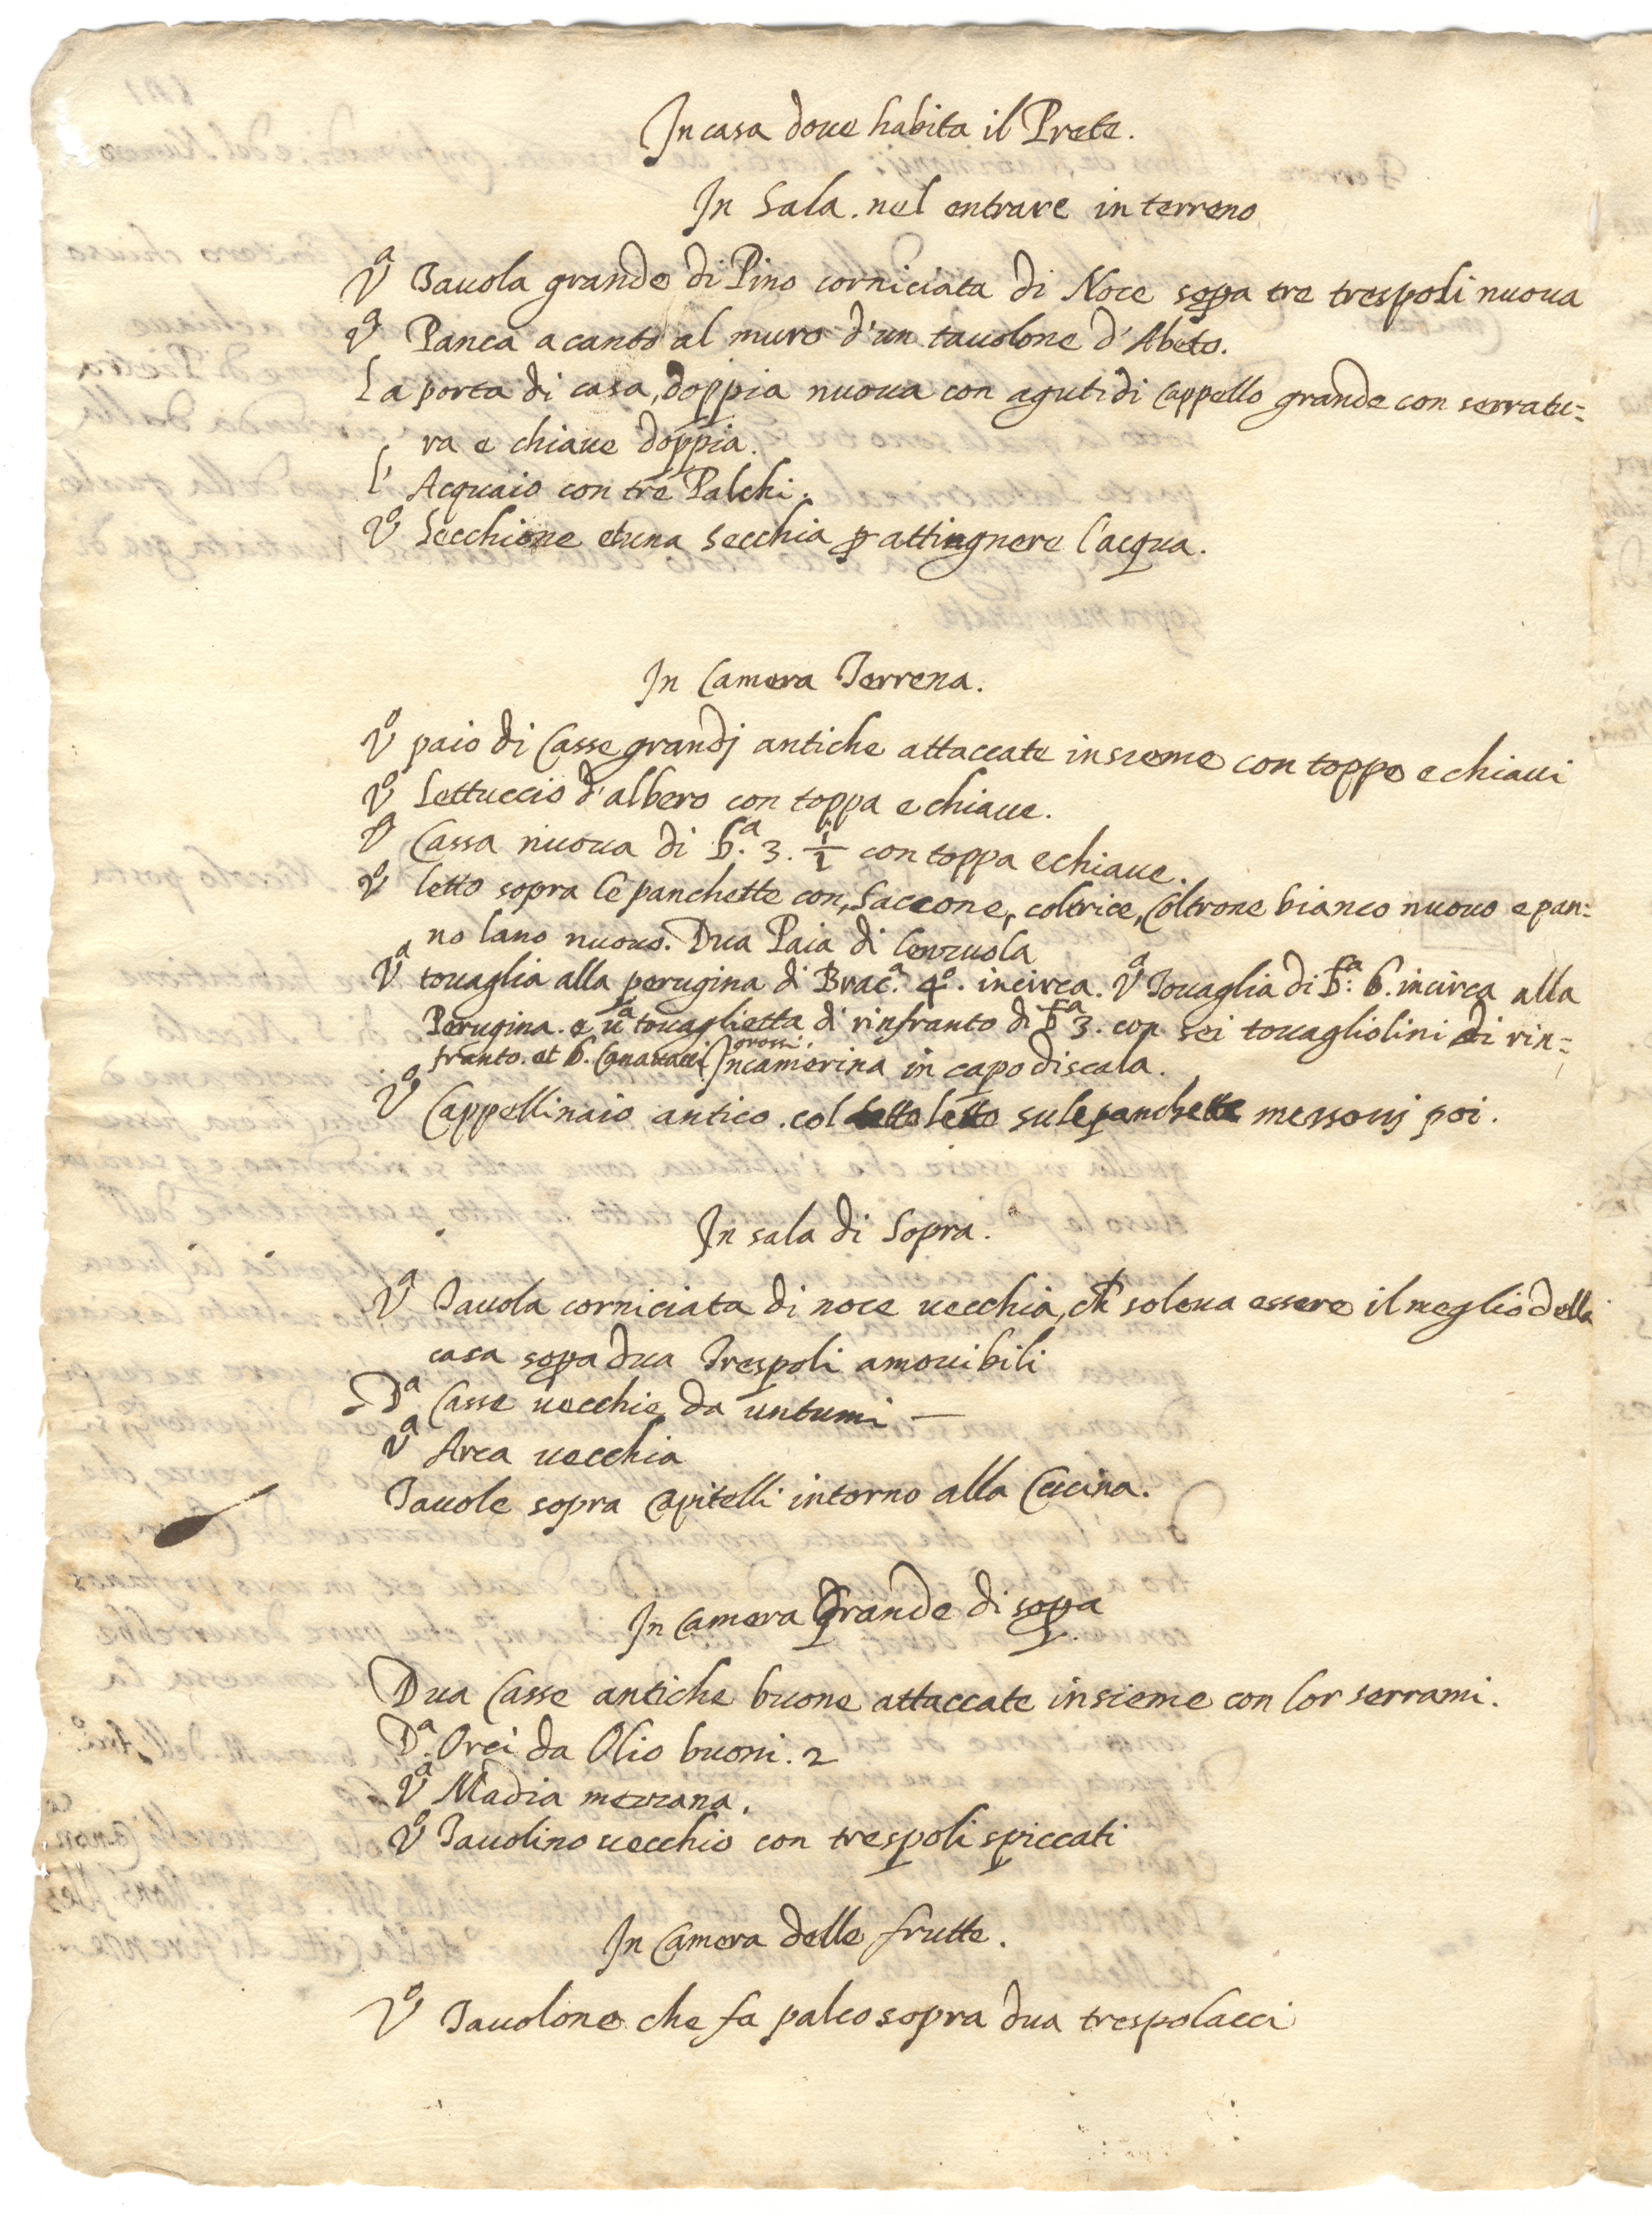 In casa doue habita il Prete.
In Sala. nel entrare in terreno
Vª Tauola grande di Pino corniciata di Noce sopra tre trespoli nuoua
Vª Panca acanto al muro d'un tauolone d'Abeto.
La porta di casa, doppia nuoua con aguti di Cappello grande con serratu=
ra e chiaue doppia.
L' Acquaio con tre Palchi.
Vº Secchione et una Secchia p attingnere l'acqua.
In Camera Terrena.
Vº paio di Casse grandj antiche attaccate insieme con toppe e chiaui
Vº Lettuccio d'albero con toppa e chiaue.
Vª Cassa nuoua di bª. 3. 1/2 con toppa e chiaue.
Vº letto sopra le panchette con, Saccone, coltrice, Coltrone bianco nuouo e pan=
no lano nuouo. Dua Paia di lenzuola
Vª touaglia alla perugina di Bracª. 4º. incirca. Vª Touaglia di bª. 6. incirca alla
Perugina. e uª touaglietta di rinfranto di bª 3. con sei touagliolini di rin=
franto. et 6. Canauacci grossi, In camerina in capo di scala.
Vº Cappellinaio antico. col letto su le panchette messouj poi.
In sala di Sopra.
Vª Tauola corniciata di noce uecchia, ch soleua essere il meglio della
casa sopra dua Trespoli amouibili
Dª Casse uecchie da untumi —
Vª Arca uecchia
Tauole sopra Capitelli intorno alla Cucina.
In Camera Grande di sopra
Dua Casse antiche buone attaccate insieme con lor serrami.
Dª. Orci da Olio buoni. 2
Vª Madia mezzana.
Vº Tauolino uecchio con trespoli spiccati
In Camera delle frutte.
Vº Tauolone che fa palco sopra dua trespolacci